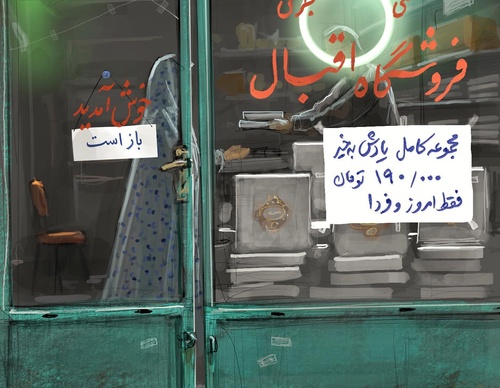 فروشگاه اقبال
خوش آمدید
باز است
مجموعه کامل یادش به خیر
۱۹۰/۰۰۰ تومان
فقط امروز و فردا